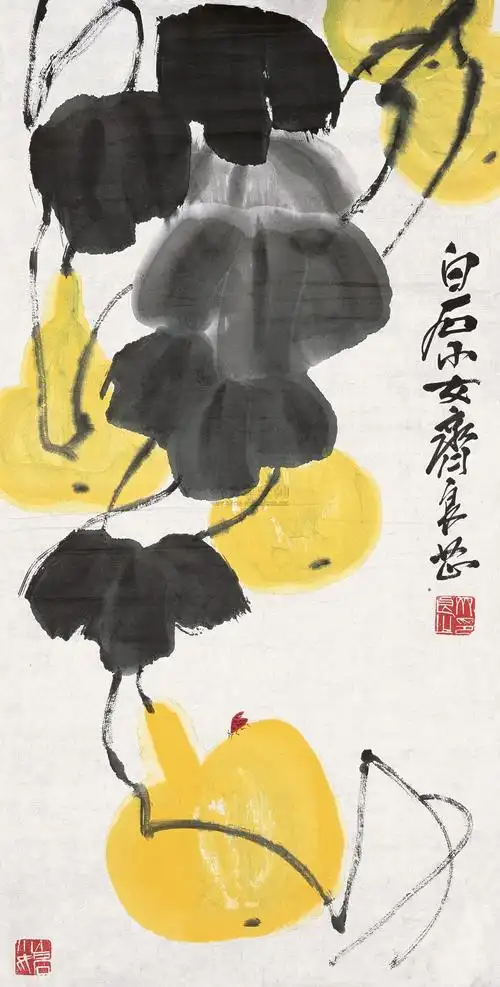 白石小女齊良芷